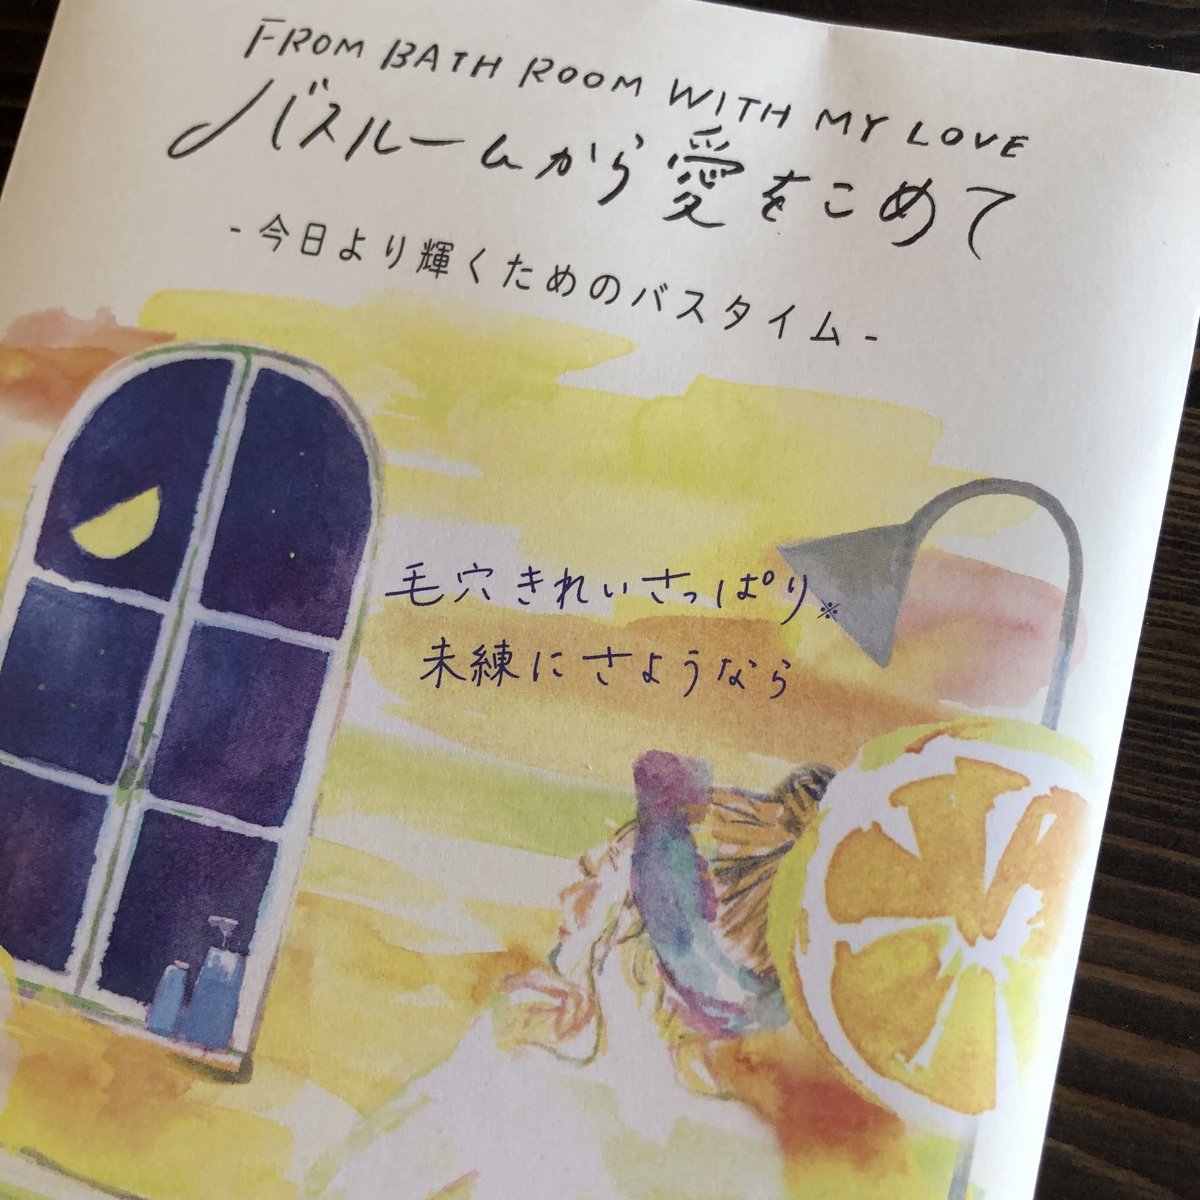 FROM BATH ROOM WITH MY LOVE
バスルームから愛をこめて
-今日より輝くためのバスタイム-
毛穴きれいさっぱり※
未練にさようなら